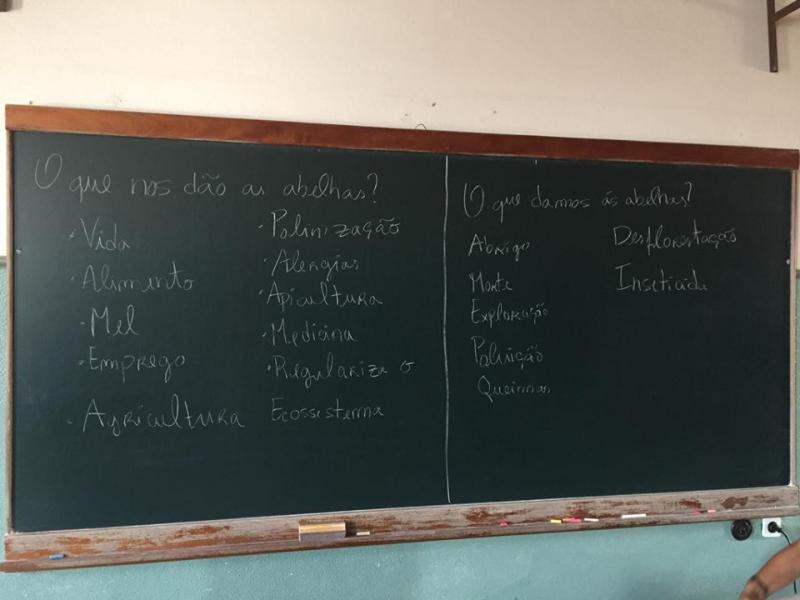 O que nos dão as abelhas?
· Vida
· Alimento
· Mel
· Emprego
· Agricultura
· Polinização
· Alergias
· Apicultura
· Medicina
· Regulariza o
Ecossistema
O que damos ás abelhas?
Abrigo
Morte
Exploração
Poluição
Queimas
Desflorestação
Inseticida